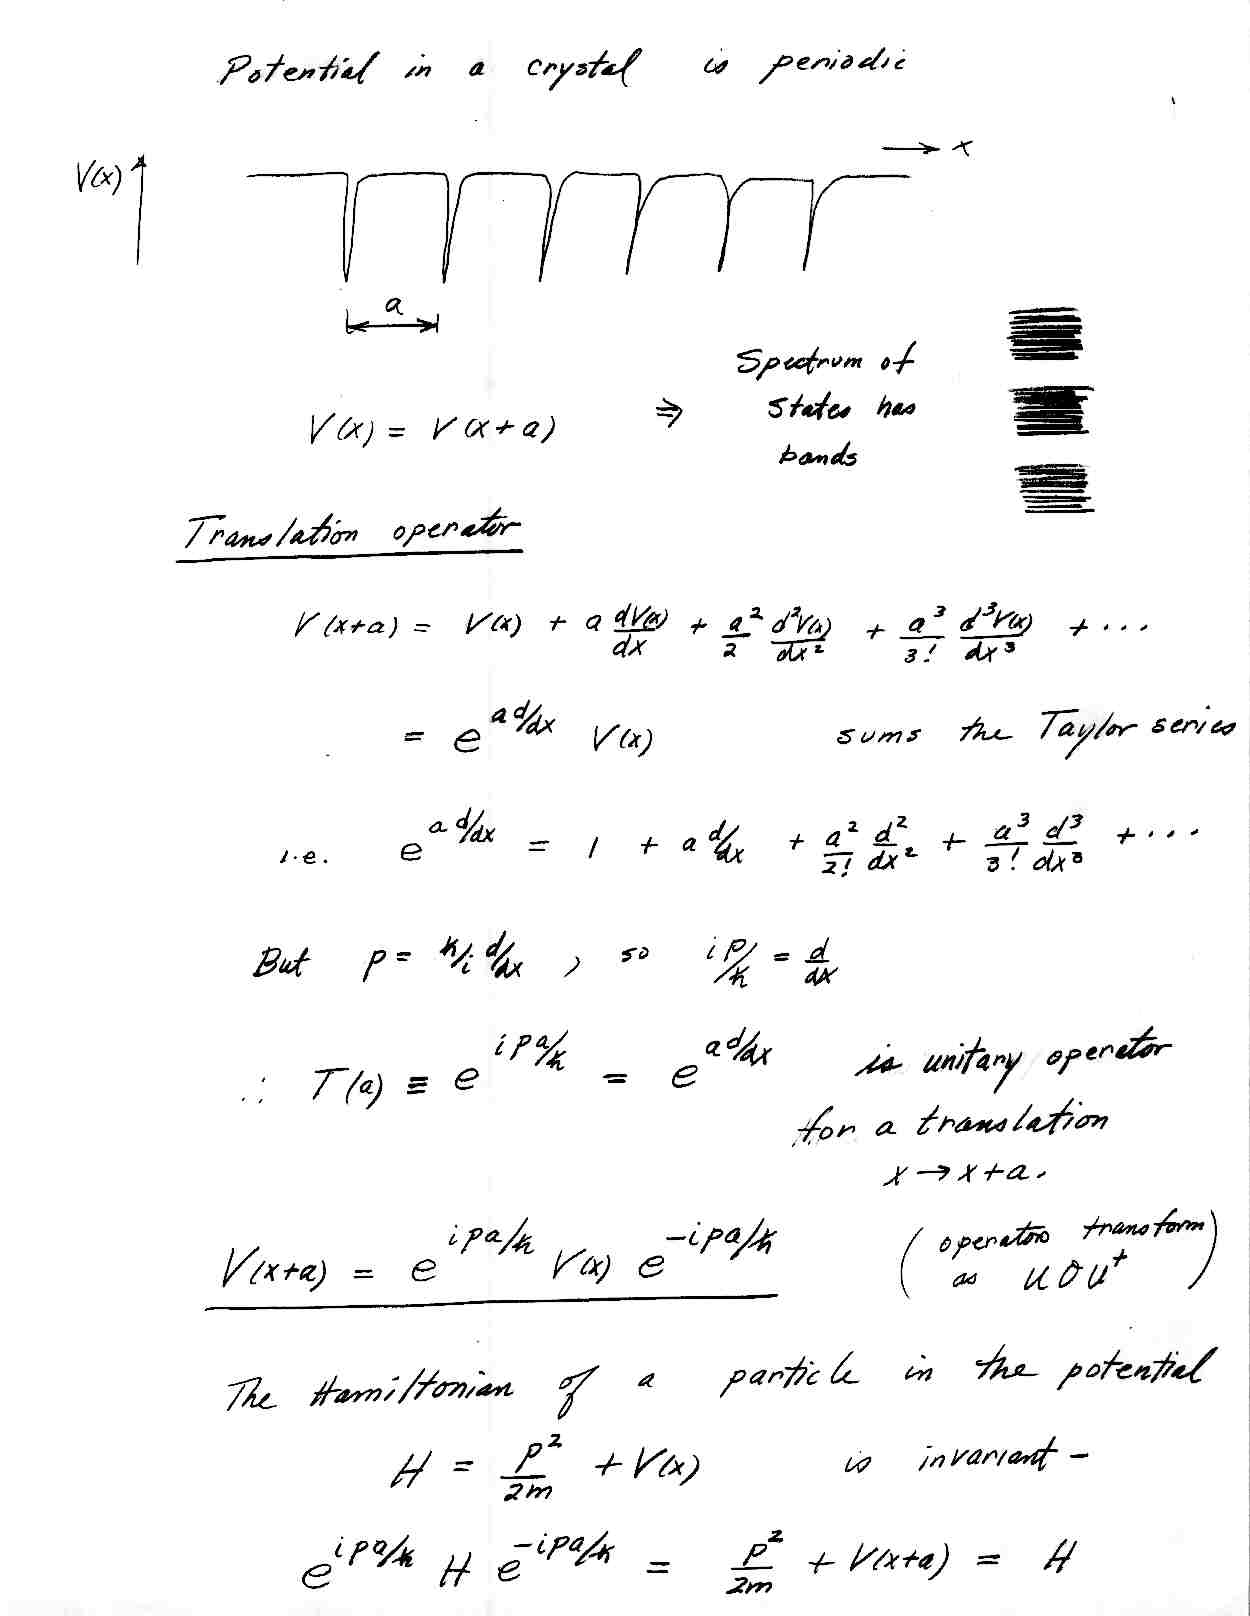 Potential in a crystal is periodic
V(x)
→ x
a
V(x) = V(x+a) ⇒ Spectrum of States has bands
Translation operator
V(x+a) = V(x) + a dV(x)/dx + a²/2 d²V(x)/dx² + a³/3! d³V(x)/dx³ + ...
= e^{a d/dx} V(x) sums the Taylor series
i.e. e^{a d/dx} = 1 + a d/dx + a²/2! d²/dx² + a³/3! d³/dx³ + ...
But p = ħ/i d/dx , so ip/ħ = d/dx
∴ T(a) ≡ e^{ipa/ħ} = e^{a d/dx} is unitary operator
for a translation
x → x+a.
V(x+a) = e^{ipa/ħ} V(x) e^{-ipa/ħ} (operators transform as U O U†)
The Hamiltonian of a particle in the potential
H = p²/2m + V(x) is invariant -
e^{ipa/ħ} H e^{-ipa/ħ} = p²/2m + V(x+a) = H